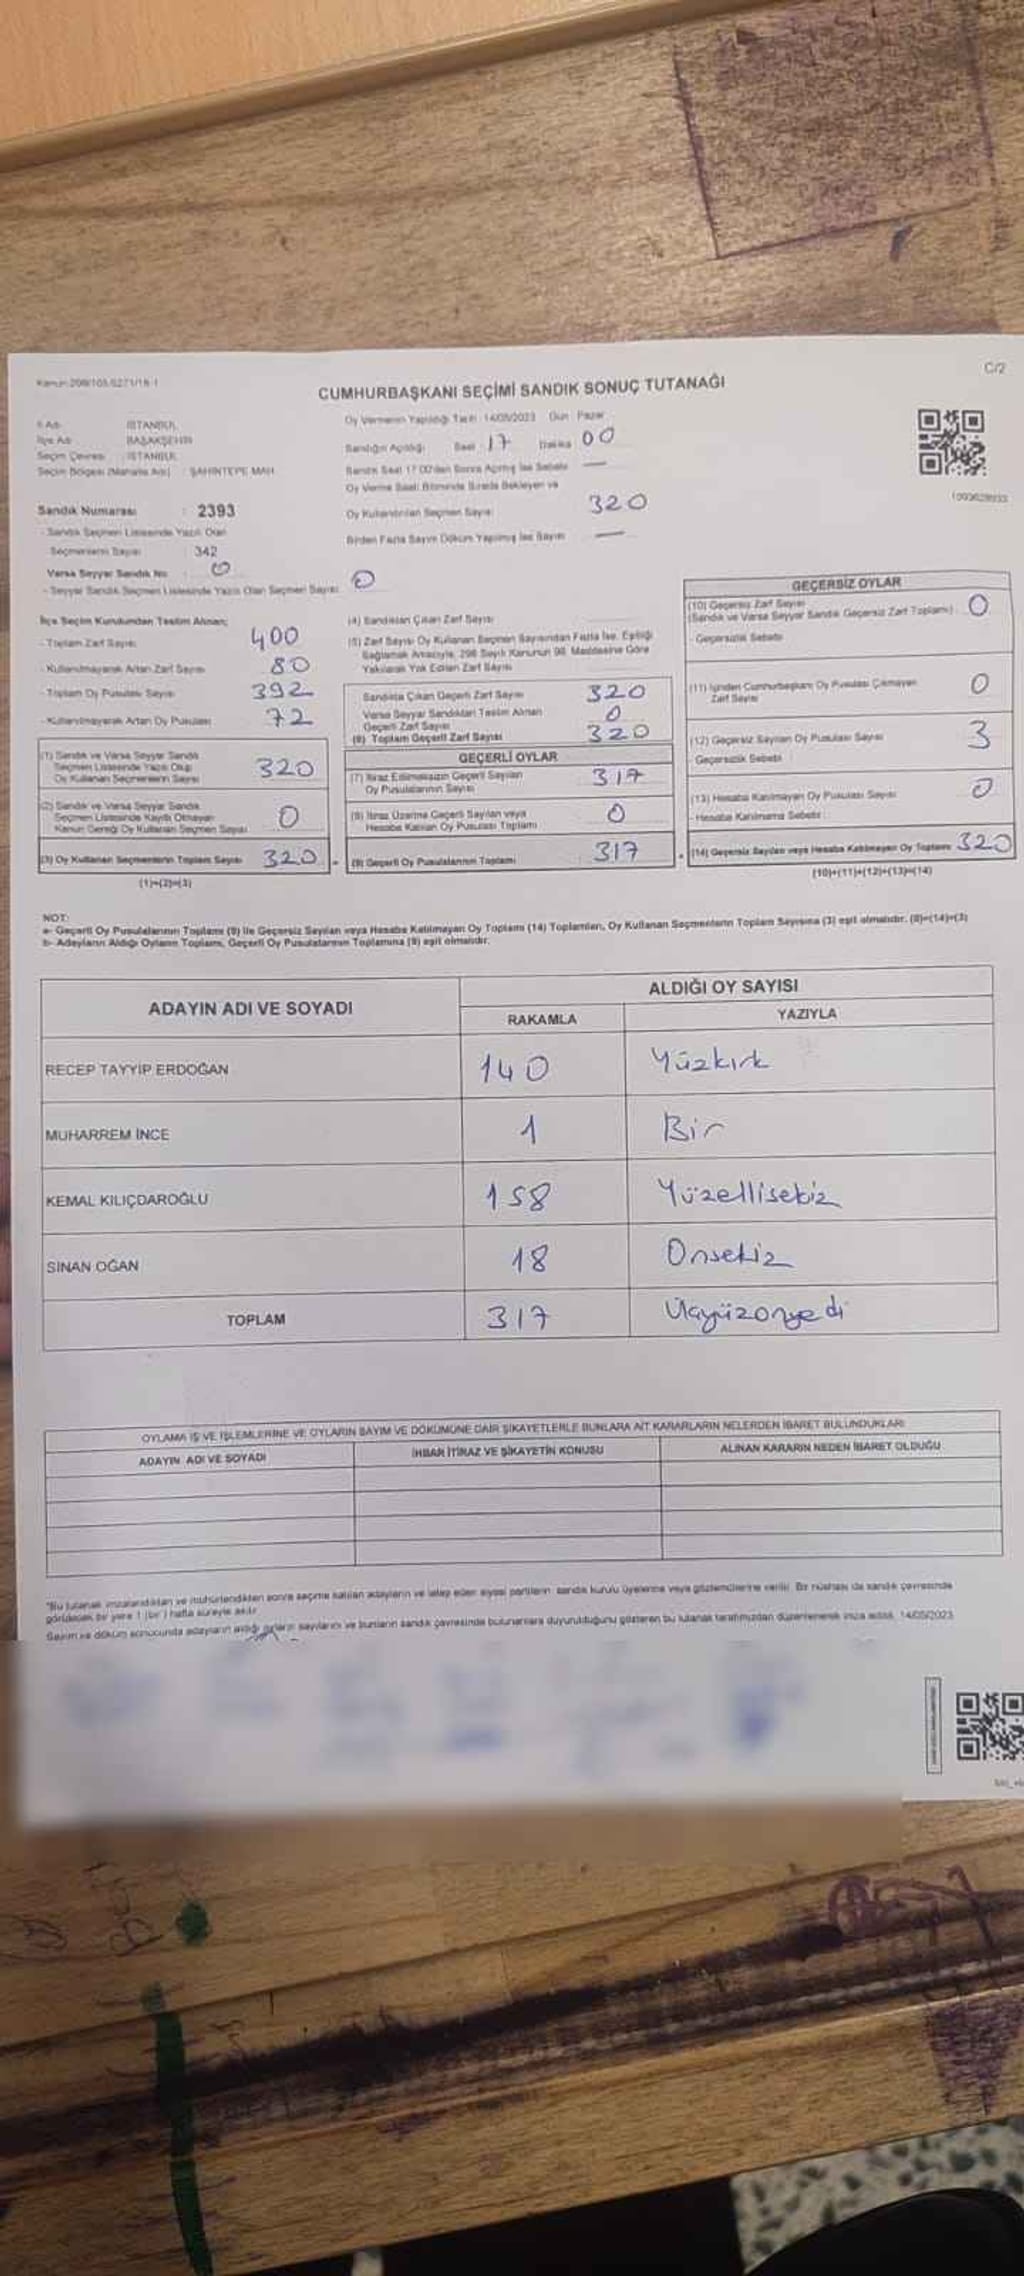 Kanun:298/103,6271/18-1
C/2
CUMHURBAŞKANI SEÇİMİ SANDIK SONUÇ TUTANAĞI
İl Adı : İSTANBUL
İlçe Adı : BAŞAKŞEHİR
Seçim Çevresi : İSTANBUL
Seçim Bölgesi (Mahalle Adı) : ŞAHİNTEPE MAH.
Sandık Numarası : 2393
- Sandık Seçmen Listesinde Yazılı Olan
Seçmenlerin Sayısı : 342
Varsa Seyyar Sandık No : 0
- Seyyar Sandık Seçmen Listesinde Yazılı Olan Seçmen Sayısı : 0
Oy Vermenin Yapıldığı Tarih : 14/05/2023 Gün : Pazar
Sandığın Açıldığı Saat 17 Dakika 00
Sandık Saat 17.00'den Sonra Açılmış İse Sebebi —
Oy Verme Saati Bitiminde Sırada Bekleyen ve
Oy Kullandırılan Seçmen Sayısı 320
Birden Fazla Sayım Döküm Yapılmış İse Sayısı —
İlçe Seçim Kurulundan Teslim Alınan;
- Toplam Zarf Sayısı 400
- Kullanılmayarak Artan Zarf Sayısı 80
- Toplam Oy Pusulası Sayısı 392
- Kullanılmayarak Artan Oy Pusulası 72
(1) Sandık ve Varsa Seyyar Sandık
Seçmen Listesinde Yazılı Olup
Oy Kullanan Seçmenlerin Sayısı 320
(2) Sandık ve Varsa Seyyar Sandık
Seçmen Listesinde Kayıtlı Olmayan
Kanun Gereği Oy Kullanan Seçmen Sayısı 0
(3) Oy Kullanan Seçmenlerin Toplam Sayısı 320
(1)+(2)=(3)
(4) Sandıktan Çıkan Zarf Sayısı
(5) Zarf Sayısı Oy Kullanan Seçmen Sayısından Fazla İse, Eşitliği
Sağlamak Amacıyla, 298 Sayılı Kanunun 98. Maddesine Göre
Yakılarak Yok Edilen Zarf Sayısı
Sandıkta Çıkan Geçerli Zarf Sayısı 320
Varsa Seyyar Sandıktan Teslim Alınan
Geçerli Zarf Sayısı 0
(6) Toplam Geçerli Zarf Sayısı 320
GEÇERLİ OYLAR
(7) İtiraz Edilmeksizin Geçerli Sayılan
Oy Pusulalarının Sayısı 317
(8) İtiraz Üzerine Geçerli Sayılan veya
Hesaba Katılan Oy Pusulası Toplamı 0
(9) Geçerli Oy Pusulalarının Toplamı 317
GEÇERSİZ OYLAR
(10) Geçersiz Zarf Sayısı
(Sandık ve Varsa Seyyar Sandık Geçersiz Zarf Toplamı) 0
- Geçersizlik Sebebi :
(11) İçinden Cumhurbaşkanı Oy Pusulası Çıkmayan
Zarf Sayısı 0
(12) Geçersiz Sayılan Oy Pusulası Sayısı 3
- Geçersizlik Sebebi :
(13) Hesaba Katılmayan Oy Pusulası Sayısı 0
- Hesaba Katılmama Sebebi :
(14) Geçersiz Sayılan veya Hesaba Katılmayan Oy Toplamı 320
(10)+(11)+(12)+(13)=(14)
NOT:
a- Geçerli Oy Pusulalarının Toplamı (9) ile Geçersiz Sayılan veya Hesaba Katılmayan Oy Toplamı (14) Toplamları, Oy Kullanan Seçmenlerin Toplam Sayısına (3) eşit olmalıdır. (9)+(14)=(3)
b- Adayların Aldığı Oyların Toplamı, Geçerli Oy Pusulalarının Toplamına (9) eşit olmalıdır.
ADAYIN ADI VE SOYADI
ALDIĞI OY SAYISI
RAKAMLA YAZIYLA
RECEP TAYYİP ERDOĞAN 140 Yüzkırk
MUHARREM İNCE 1 Bir
KEMAL KILIÇDAROĞLU 158 Yüzellisekiz
SİNAN OĞAN 18 Onsekiz
TOPLAM 317 Üçyüzonyedi
OYLAMA İŞ VE İŞLEMLERİNE VE OYLARIN SAYIM VE DÖKÜMÜNE DAİR ŞİKAYETLERLE BUNLARA AİT KARARLARIN NELERDEN İBARET BULUNDUKLARI
ADAYIN ADI VE SOYADI İHBAR İTİRAZ VE ŞİKAYETİN KONUSU ALINAN KARARIN NEDEN İBARET OLDUĞU
"Bu tutanak imzalandıktan ve mühürlendikten sonra seçime katılan adayların ve talep eden siyasi partilerin sandık kurulu üyelerine veya gözlemcilerine verilir. Bir nüshası da sandık çevresinde
görülecek bir yere 1 (bir ) hafta süreyle asılır.
Sayım ve döküm sonucunda adayların aldığı oyların sayılarını ve bunların sandık çevresinde bulunanlara duyurulduğunu gösteren bu tutanak tarafımızdan düzenlenerek imza edildi. 14/05/2023